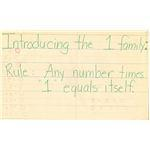 Introducing the 1 family:
Rule: Any number times
"1" equals itself.